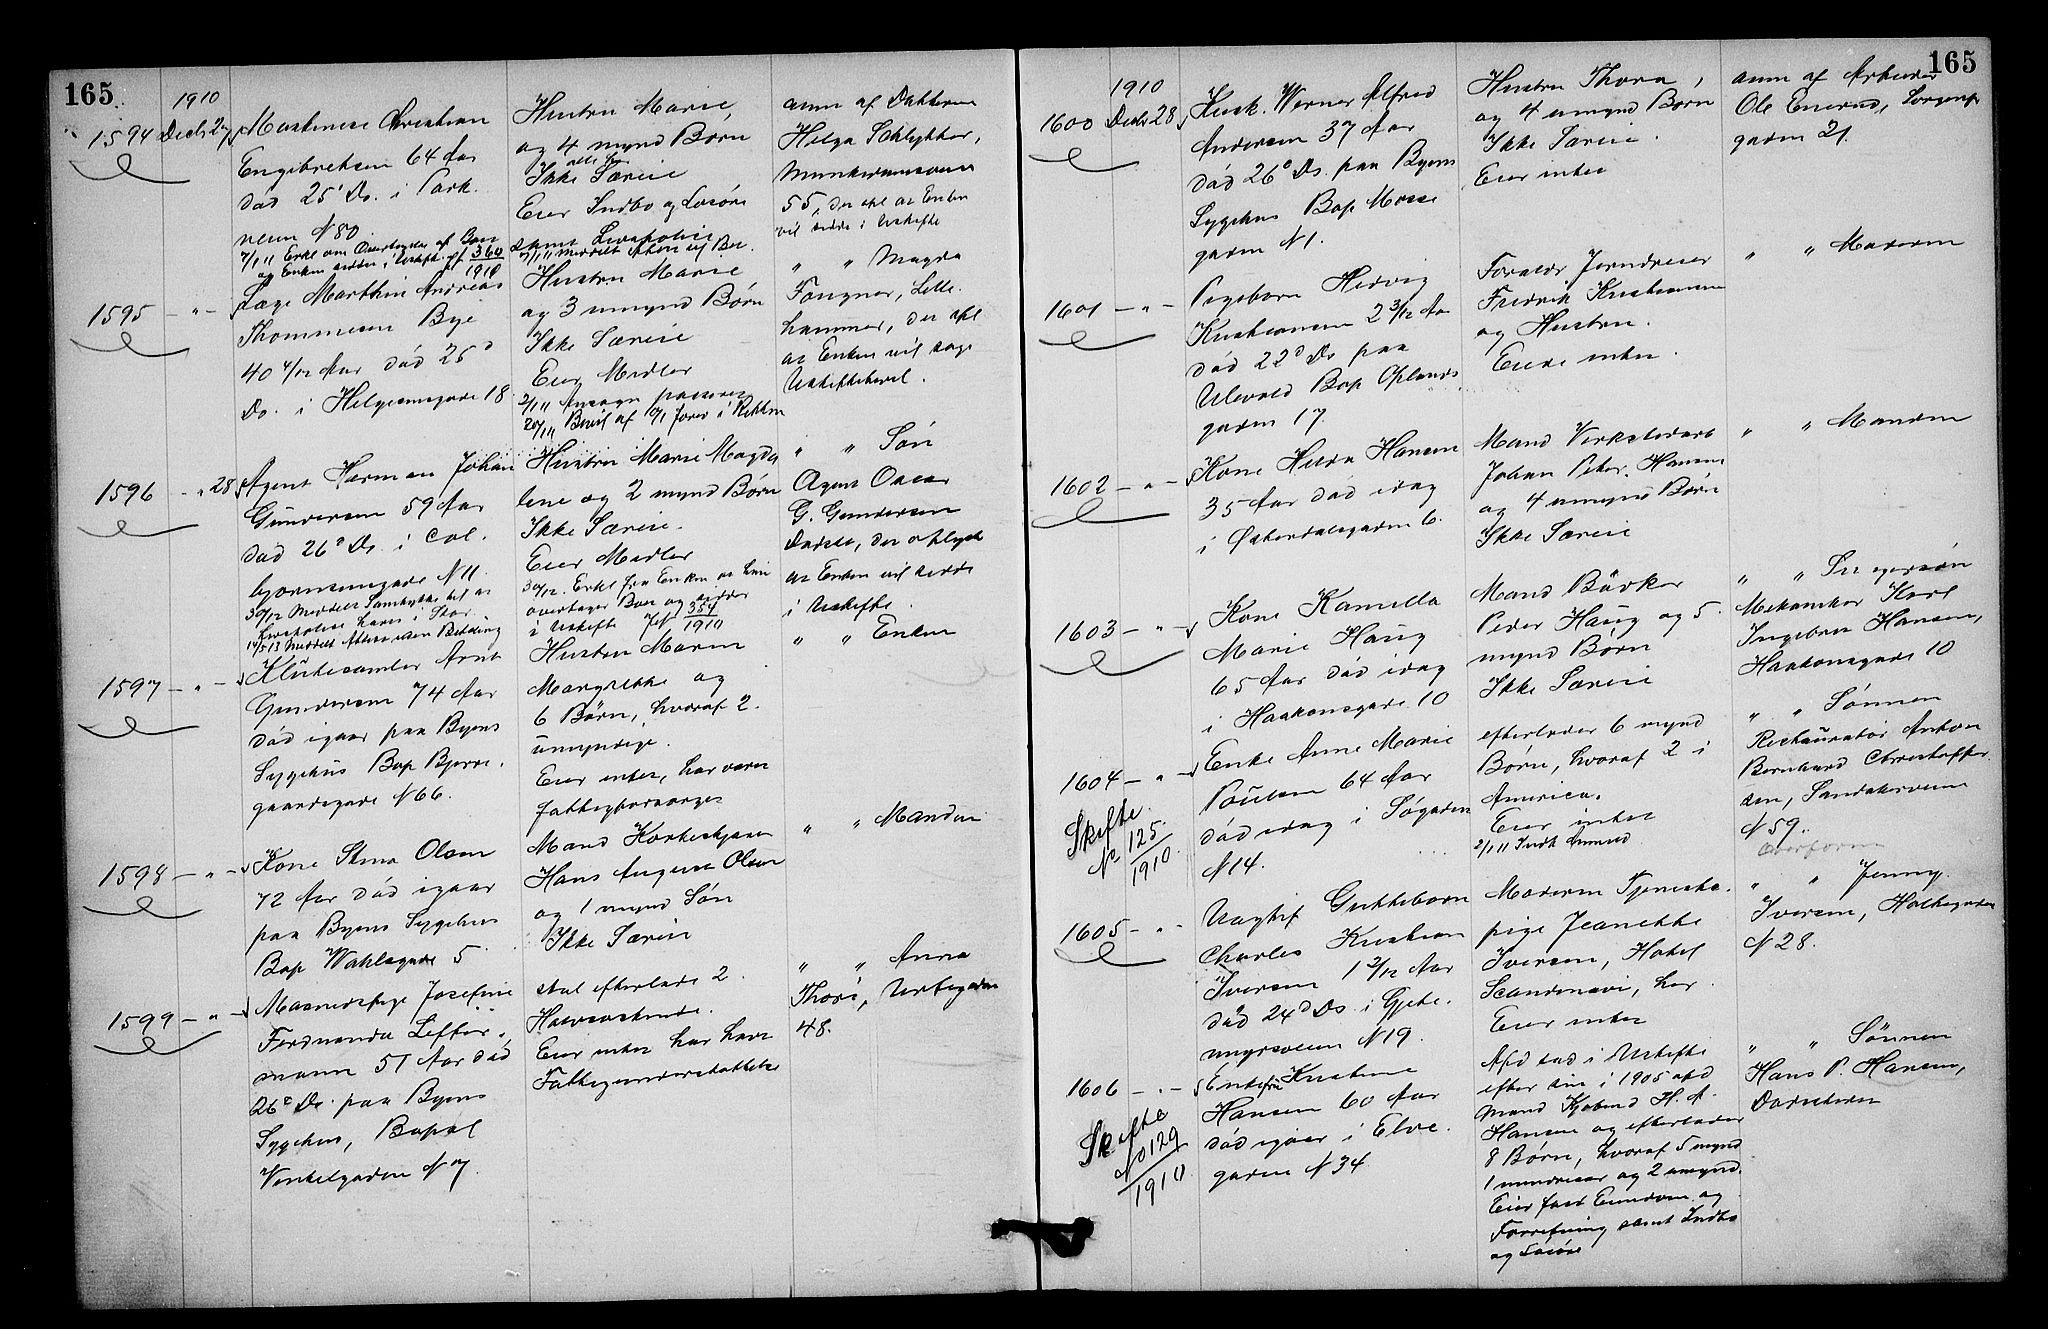 165
1910
1594 Decbr 27
Maskinist Christian
Engebretsen 64 Aar
død 25' Ds. i Park
veien N 80
7/1 11 Erkl. om Overtagelse af Boet
og Enken sidder i Uskifte jf 360/1910
Hustru Marie,
og 4 mynd Børn
Ikke Særeie
Eier Indbo og Løsøre
samt Livspolice
anm af Datteren
Helga
Munkedamsveien
55, der opl at Enken
vil sidde i Uskifte
1595 - " -
Læge Marthin Andreas
Thommesen Bye
40 4/12 Aar død 25'
Ds. i Helgesensgade 18
Hustru Marie
og 3 umynd Børn
Ikke Særeie
Eier Midler
2/1 11
20/1 11 Bevil af
" " Magda
Fougner, Lille
hammer, der opl
at Enken vil søge
Uskiftebevil.
1596 - " 28
Agent Herman Johan
Gundersen 59 Aar
død 26' Ds. i Col
bjørnsensgade N 11
30/12 Meddelt Samtykke til at
Livspolice hæves i Stor
Hustru Marie Magda
lene og 2 mynd Børn
Ikke Særeie.
Eier Midler
30/12. Erkl fra Enken at hun
overtager Boet og sidder
i Uskifte Jf 354/1910
" " Søn
Agent Oscar
G. Gundersen
Dadsted, der oplyste
at Enken vil sidde
i Uskifte.
1597 - " -
Kludesamler Arnt
Gundersen 74 Aar
død igaar paa Byens
Sygehus Bop Bjerre
gaardsgade N 66.
Hustru Maren
Margrethe og
6 Børn, hvoraf 2
umyndige.
Eier intet, har været
fattigforsørget
" " Enken
1598 - " -
Kone Stina Olsen
72 Aar død igaar
paa Byens Sygehus
Bop Wahlsgade 5
Mand
Hans August Olsen
og 1 mynd Søn
Ikke Særeie
" " Manden
1599 - " -
Josefine
Fernanda Leffler
mann 51 Aar død
26' Ds. paa Byens
Sygehus, Bopæl
Vinkelgaden N 7.
skal efterlade 2
Halvsøskende.
Eier intet har havt
Fattigunderstøttelse
" " Anna
Thori, Urtegaden
48.
165
1910
1600 Decbr 28
Kusk. Werner Alfred
Andersen 37 Aar
død 26' Ds. paa Byens
Sygehus Bop Mosse
gaden N 1.
Hustru Thora,
og 4 umynd Børn
Ikke Særeie.
Eier intet
anm af Arbeider
Ole Enerud, Borgen
gaden 21.
1601 - " -
Pigebarn Hedvig
Kristiansen 2 3/12 Aar
død 22' Ds paa
Ulevold Bop Oplands
gaden 17.
Forældr Jerndreier
Fredrik Kristiansen
og Hustru.
Eier intet.
" " Moderen
1602 - " -
Kone Hilda Hansen
35 Aar død idag
i Østerdalsgaden 6.
Mand Verkstedarb
Johan Peter Hansen
og 4 umynd Børn
Ikke Særeie
" " Manden
1603 - " -
Kone Kamilla
Marie Haug
65 Aar død idag
i Haakonsgade 10
Mand Bødker
Peder Haug og 5
mynd Børn
Ikke Særeie
" " Svigersøn
Mekaniker Karl
Ingebret Hansen,
Haakonsgade 10
1604 - " -
Skifte
No 125/1910.
Enke Anne Marie
Poulsen 64 Aar
død idag i Søgaden
N 14.
efterlader 6 mynd
Børn, hvoraf 2 i
America.
Eier intet
2/1 11 Indk Anmd
" " Sønnen
Restauratør Anton
Bernhard Christoffer
sen, Sandakerveien
N 59.
1605 - " -
Uægte Guttebarn
Charles Kristian
Iversen 1 2/12 Aar
død 24' Ds. i Gjete
myrsveien N 19.
Moderen Tjeneste
pige Jeanette
Iversen, Hotel
Scandinavi, her
Eier intet
" " Jenny
Iversen, Holtegaden
N 28.
1606 - " -
Skifte
No 129/1910
Enkefru Kristine
Hansen 60 Aar
død igaar i Elve
gaden N 34
Afd sad i Uskifte
efter sin i 1905 afd
Mand Kjøbmd H. A.
Hansen og efterlader
8 Børn, hvoraf 5 mynd
1 mindreaar og 2 umynd.
Eier fast Eiendom og
Forretning samt Indbo
og Løsøre
" " Sønnen
Hans P. Hansen,
Dødsstedet